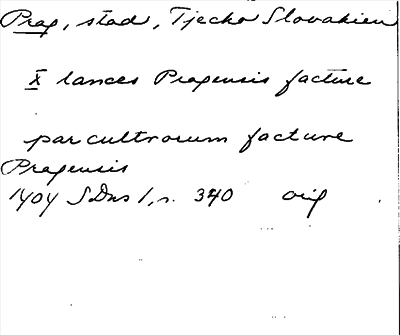 Prag, stad, Tjecko Slovakien
X lances Pragensis facture
par cultrorum facture
Pragensis
1404 SDns 1, n. 340 orig